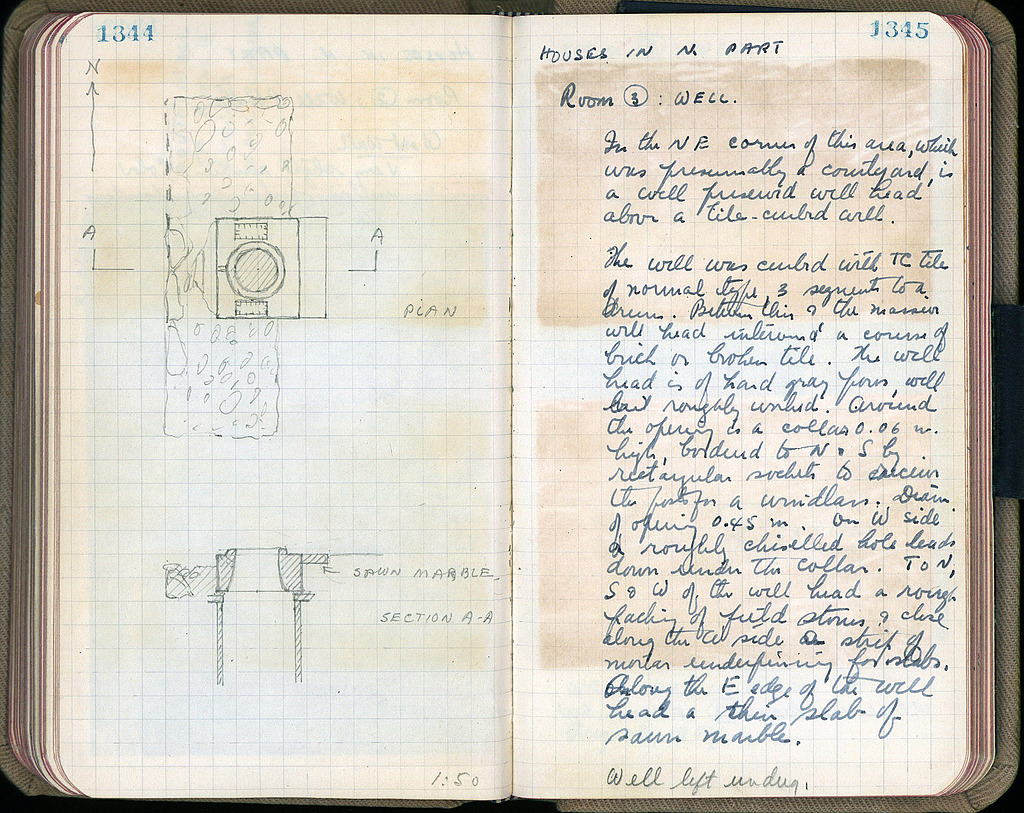 1344
N
A
A
PLAN
SAWN MARBLE
SECTION A-A
1:50
1345
HOUSES IN N. PART
Room ③: WELL.
In the NE corner of this area, which
was presumably a courtyard, is
a well preserved well head
above a tile-curbed well.
The well was curbed with TC tile
of normal type, 3 segments to a
drum. Between this & the massive
well head intervened a course of
brick or broken tile. The well
head is of hard gray poros, well
but roughly worked. Around
the opening is a collar 0.06 m.
high, bordered to N & S by
rectangular sockets to receive
the posts for a windlass. Diam.
of opening 0.45 m. On W side
a roughly chiselled hole leads
down under the collar. To N,
S & W of the well head a rough
packing of field stones & close
along the W side a strip of
mortar underpinning for slabs.
Along the E edge of the well
head a thin slab of
sawn marble.
Well left undug.